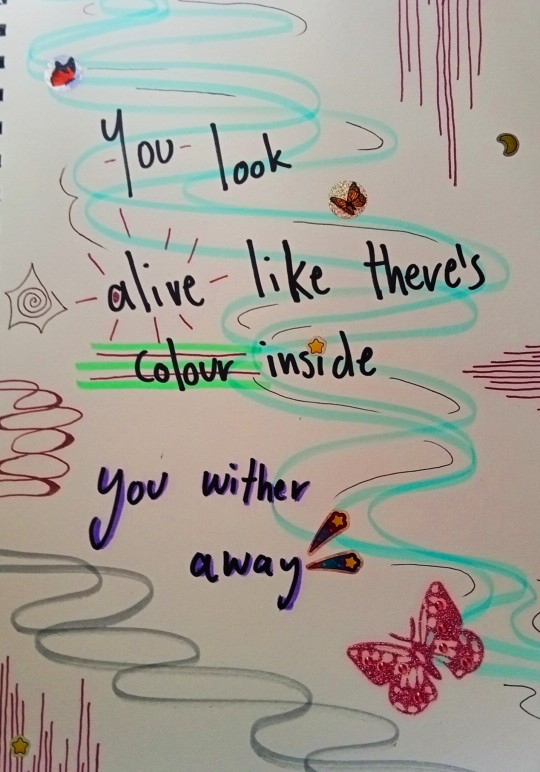 You look
alive like there's
colour inside
you wither
away